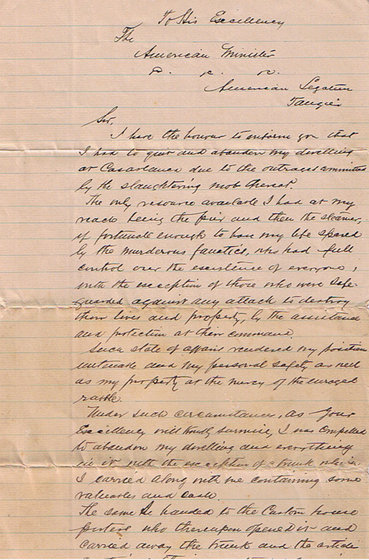 To His Excellency
The
American Minister
&. &. &.
American Legation
Tangier
Sir,
I have the honour to inform you that
I had to quit and abandon my dwelling
at Casablanca due to the outrages committed
by the slaughtering mob thereat.
The only resource available I had at my
reach being the pier and then the steamer,
if fortunate enough to have my life spared
by the murderous fanatics, who had full
control over the existence of everyone,
with the exception of those who were safe-
guarded against any attack to destroy
their lives and property, by the assistance
and protection at their command.
Such state of affairs rendered my position
untenable and my personal safety as well
as my property at the mercy of the enraged
rabble.
Under such circumstances, as Your
Excellency will surmise, I was compelled
to abandon my dwelling and everything
in it with the exception of a trunk which
I carried along with me containing some
valuables and cash.
The same I handed to the Custom house
porters who thereupon opened it and
carried away the trunk and the article